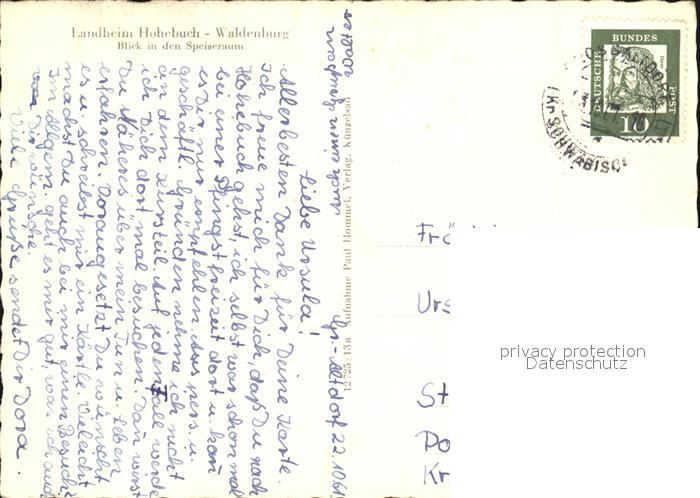 Landheim Hohebuch - Waldenburg
Blick in den Speiseraum
Gr.-Altdorf 22.10.61
Liebe Ursula!
Allerbesten Dank für Deine Karte.
Ich freue mich für Dich, daß Du nach
Hohebuch gehst, ich selbst war schon mal
bei einer Pfingstfreizeit dort u. kann
es Dir nur empfehlen. Aus pers. u.
geschäftl. Gründen nehme ich nicht
an dem Kurs teil. Auf jeden Fall werde
ich Dich dort mal besuchen. Dan wirst
Du Näheres über mein Tun u. Leben
erfahren. Vorausgesetzt Du wünscht
es u. schreibst mir ein Kärtle. Vielleicht
machst Du auch bei mir einen Besuch?
Im Allgem. geht es mir gut, was ich auch
von Dir wünsche.
Viele Grüße sendet Dir Dora.
auch einen
12/725/13a Aufnahme Paul Hommel, Verlag, Künzelsau
DEUTSCHE
BUNDES
POST
10
(Kr. SCHWÄBISCH
Frä
Urs
St
Do
Kr
privacy protection
Datenschutz